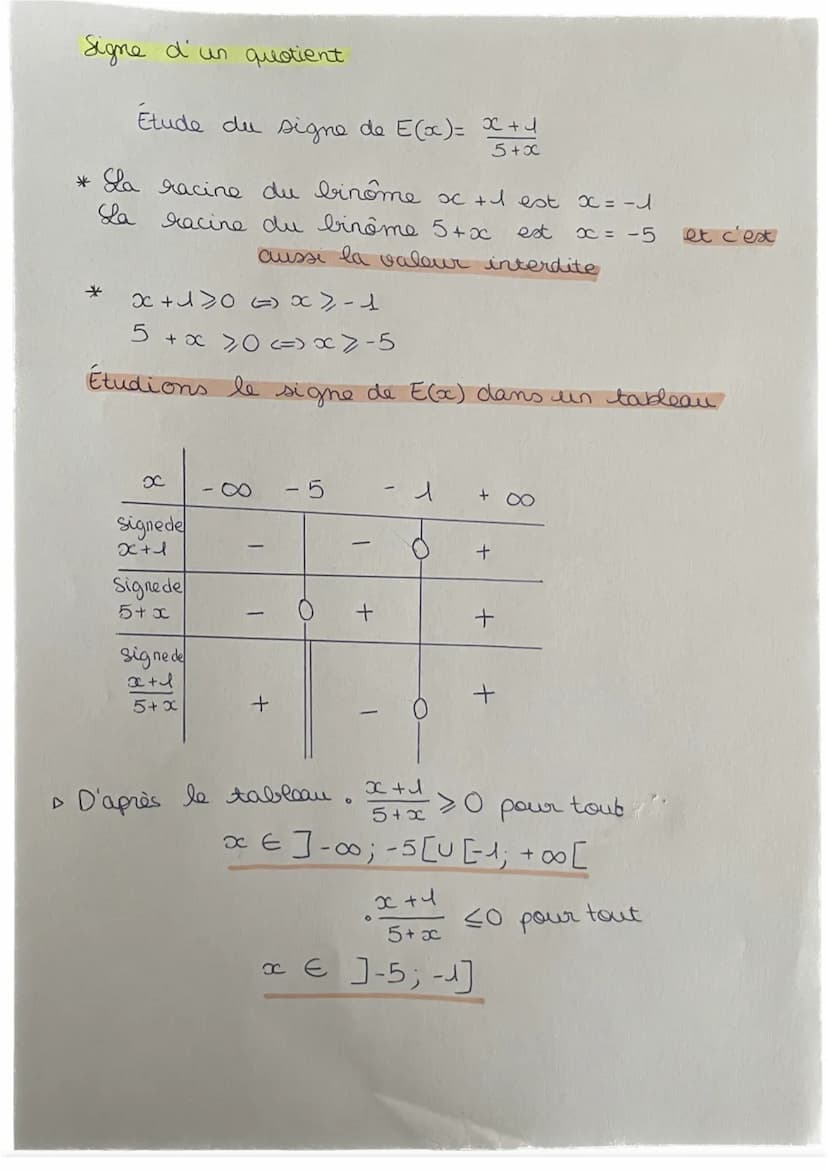 Signe d'un quotient
Étude du signe de E(x) = x+1 / 5+x
* La racine du binôme x+1 est x = -1
La racine du binôme 5+x est x = -5 et c'est
aussi la valeur interdite
* x+1 ⩾ 0 <=> x ⩾ -1
5 + x ⩾ 0 <=> x ⩾ -5
Étudions le signe de E(x) dans un tableau
x -∞ -5 -1 +∞
signe de
x+1 - - 0 +
Signe de
5+x - 0 + +
signe de
x+1 / 5+x + || - 0 +
▷ D'après le tableau • x+1 / 5+x ⩾ 0 pour tout
x ∈ ]-∞; -5[ ∪ [-1; +∞[
• x+1 / 5+x ≤ 0 pour tout
x ∈ ]-5; -1]